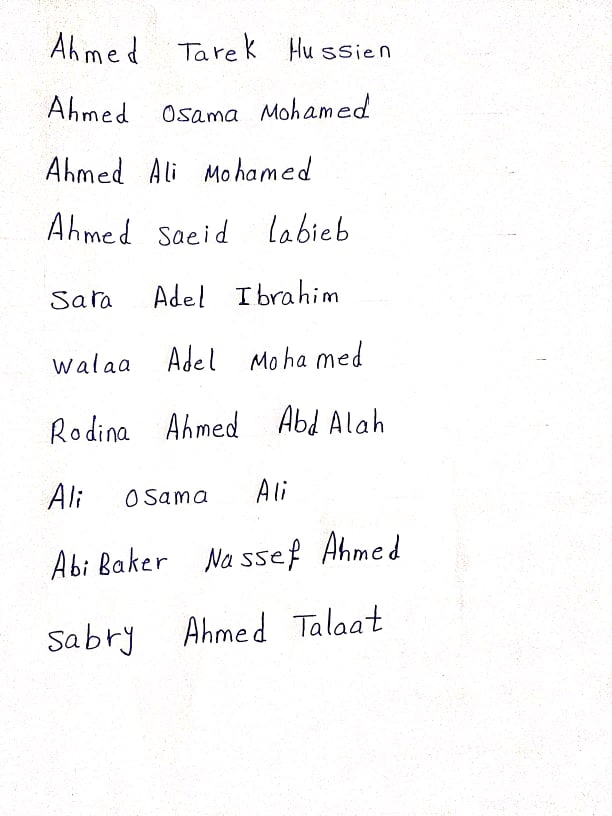 Ahmed Tarek Hussien
Ahmed Osama Mohamed
Ahmed Ali Mohamed
Ahmed Saeid Labieb
Sara Adel Ibrahim
Walaa Adel Mohamed
Rodina Ahmed Abd Alah
Ali Osama Ali
Abi Baker Nassef Ahmed
Sabry Ahmed Talaat